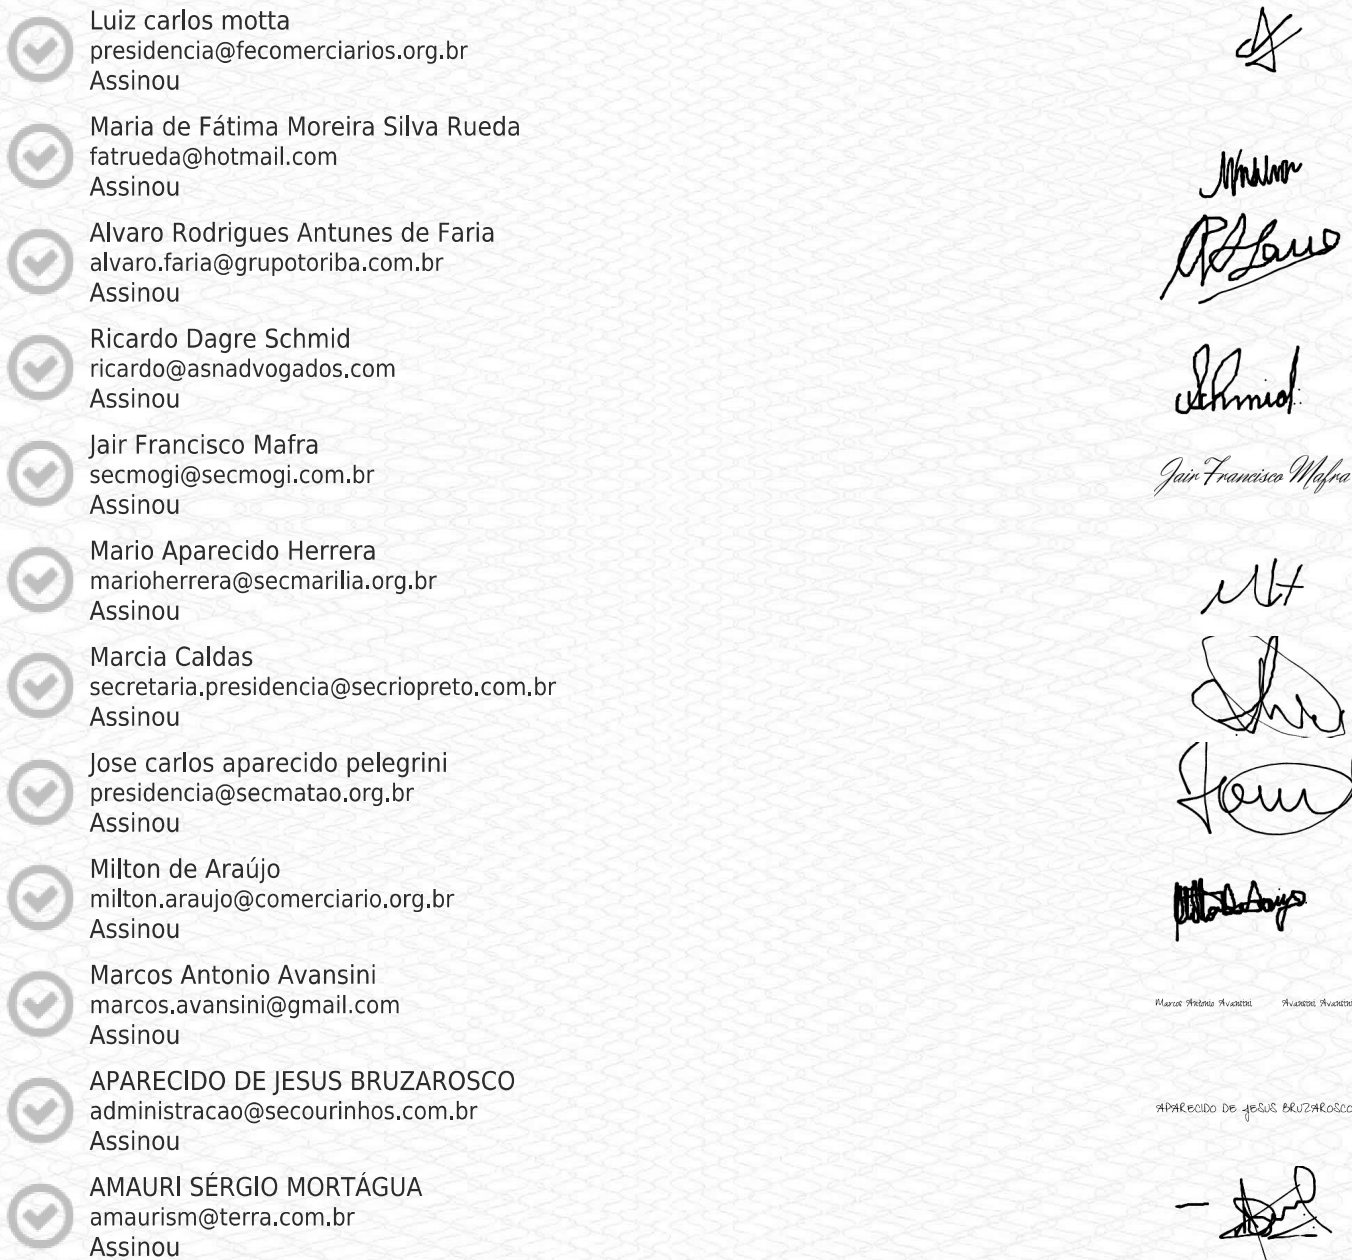 Luiz carlos motta
presidencia@fecomerciarios.org.br
Assinou
Maria de Fátima Moreira Silva Rueda
fatrueda@hotmail.com
Assinou
Alvaro Rodrigues Antunes de Faria
alvaro.faria@grupotoriba.com.br
Assinou
Ricardo Dagre Schmid
ricardo@asnadvogados.com
Assinou
Schmid
Jair Francisco Mafra
secmogi@secmogi.com.br
Assinou
Jair Francisco Mafra
Mario Aparecido Herrera
marioherrera@secmarilia.org.br
Assinou
Marcia Caldas
secretaria.presidencia@secriopreto.com.br
Assinou
Jose carlos aparecido pelegrini
presidencia@secmatao.org.br
Assinou
Milton de Araújo
milton.araujo@comerciario.org.br
Assinou
Marcos Antonio Avansini
marcos.avansini@gmail.com
Assinou
Marcos Antonio Avansini Avansini Avansini
APARECIDO DE JESUS BRUZAROSCO
administracao@secourinhos.com.br
Assinou
APARECIDO DE JESUS BRUZAROSCO
AMAURI SÉRGIO MORTÁGUA
amaurism@terra.com.br
Assinou